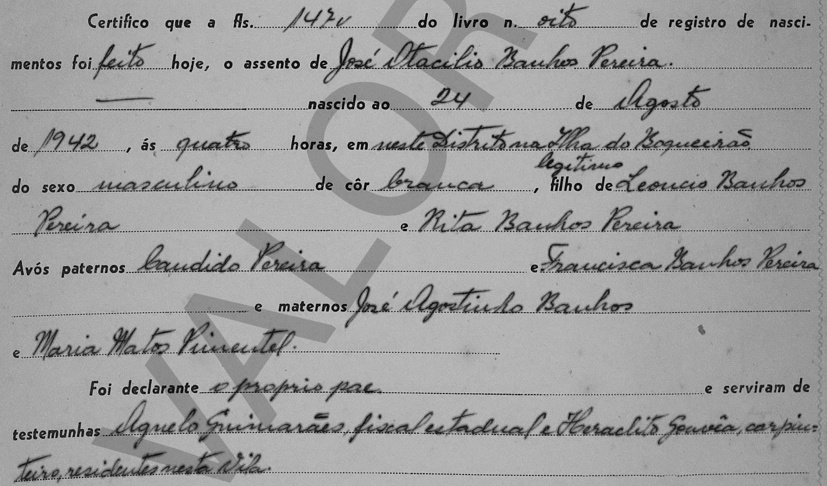 Certifico que a fls. 147v do livro n. oito de registro de nasci-
mentos foi feito hoje, o assento de José Otacilio Banhos Pereira.
nascido ao 24 de Agosto
de 1942, ás quatro horas, em neste Distrito na Ilha do Boqueirão
legitimo
do sexo masculino de côr branca, filho de Leoncio Banhos
Pereira e Rita Banhos Pereira
Avós paternos Candido Pereira e Francisca Banhos Pereira
e maternos José Agostinho Banhos
e Maria Matos Pimentel.
Foi declarante o proprio pae e serviram de
testemunhas Agnelo Guimarães, fiscal estadual e Heraclito Gouvêa, carpin-
teiro, residentes nesta Vila.
VALOR